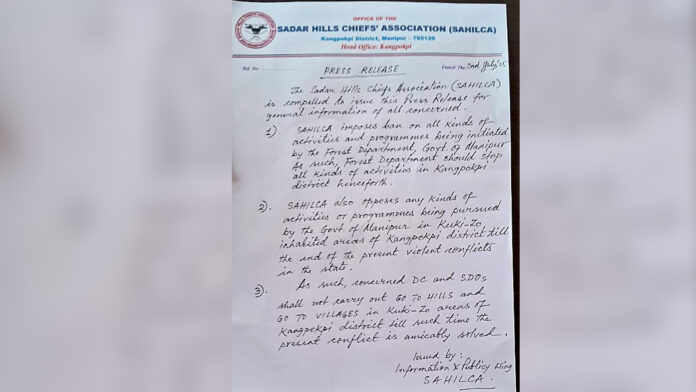 OFFICE OF THE
SADAR HILLS CHIEFS' ASSOCIATION (SAHILCA)
Kangpokpi District, Manipur - 795129
Head Office: Kangpokpi
Ref. No.
Dated. The 2nd July/25
PRESS RELEASE
The Sadar Hills Chiefs Association (SAHILCA)
is compelled to issue this Press Release for
general information of all concerned.
1). SAHILCA imposes ban on all kinds of
activities and programmes being initiated
by the Forest Department, Govt. of Manipur
As such, Forest Department should stop
all kinds of activities in Kangpokpi
district henceforth.
2). SAHILCA also opposes any kinds of
activities or programmes being pursued
by the Govt of Manipur in Kuki-Zo
inhabited areas of Kangpokpi district till
the end of the present violent conflicts
in the state.
3). As such, concerned DC and SDOs
shall not carry out GO TO HILLS and
GO TO VILLAGES in Kuki-Zo areas of
Kangpokpi district till such time the
present conflict is amicably solved.
Issued by:
Information & Publicity Wing
SAHILCA.